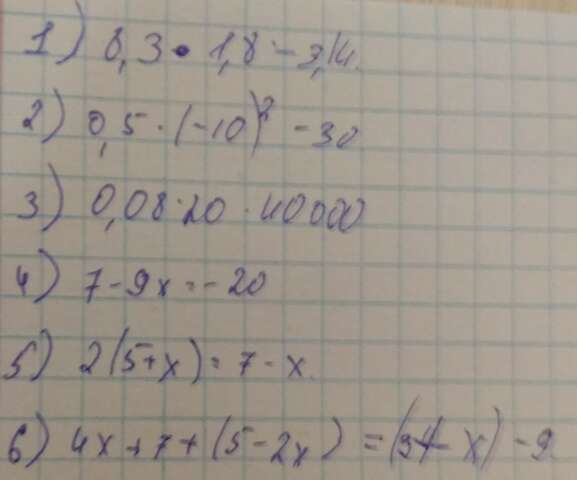 1) 8,3 • 1,8 - 3,14.
2) 0,5 · (-10)² - 30
3) 0,08 · 20 · 40000
4) 7 - 9x = - 20
5) 2(5+x) = 7 - x.
6) 4x + 7 + (5 - 2x) = (- x) - 9.